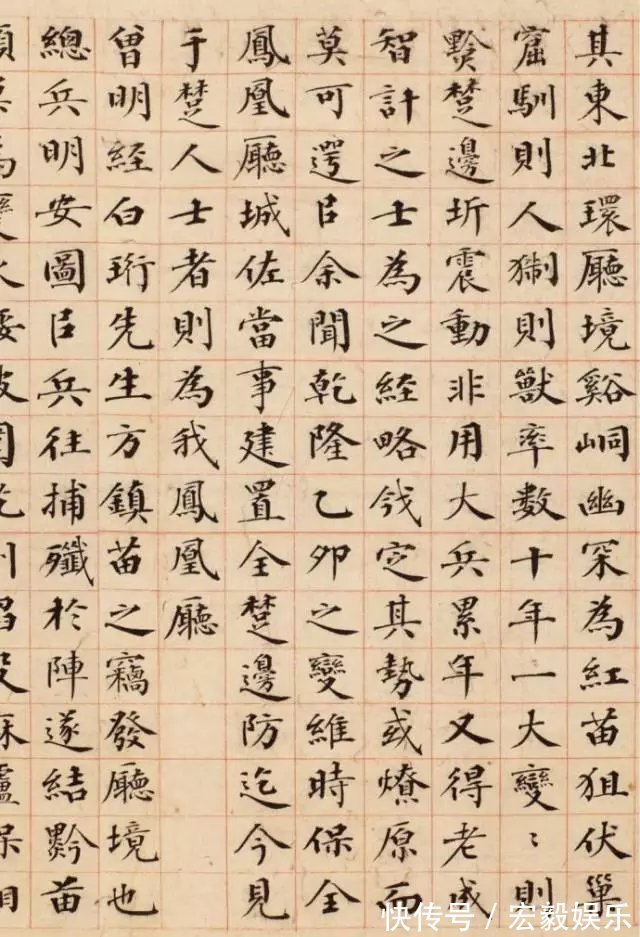 其東北環廳境谿峒幽罙為紅苗狙伏巢
窟馴則人猘則獸率數十年一大變〻則
黔楚邊圻震動非用大兵累年又得老成
智計之士為之経略定其勢或燎原而
莫可遌㠯余聞乾隆乙卯之變維時保全
鳳凰廳城佐當事建置全楚邊防迄今見
于楚人士者則為我鳳凰廳
曾明経白珩先生方鎮苗之竊發廳境也
總兵明安圖㠯兵往捕殲於陣遂結黔苗
快传号 / 宏毅娱乐